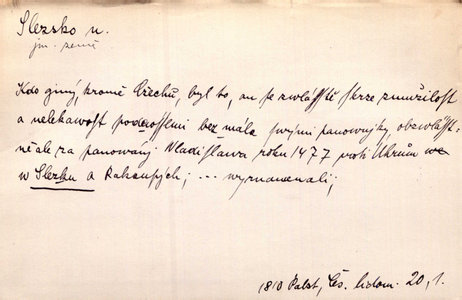 Slezsko n.
jm. země
Kdo giný, kromě Čechů, byl to, an se zwlásstě skrze zmužilost
a nelekawost pod wssemi bez mála swými panownjky, obzwlásst-
ně ale za panowánj Wladislawa roku 1477 proti Uhrům
w Slezku a Rakausých; ... wyznamenali;
1810 Palat, Čs. lidom. 20, 1.